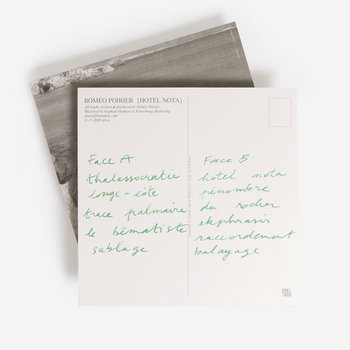 ROMÉO POIRIER [HOTEL NOTA]
All tracks written & produced by Roméo Poirier
Face A
thalassocratie
longe-côte
trace palmaire
le bématiste
sablage
Face B
hotel nota
pénombre
du rocher
ekphrasis
raccordement
balayage